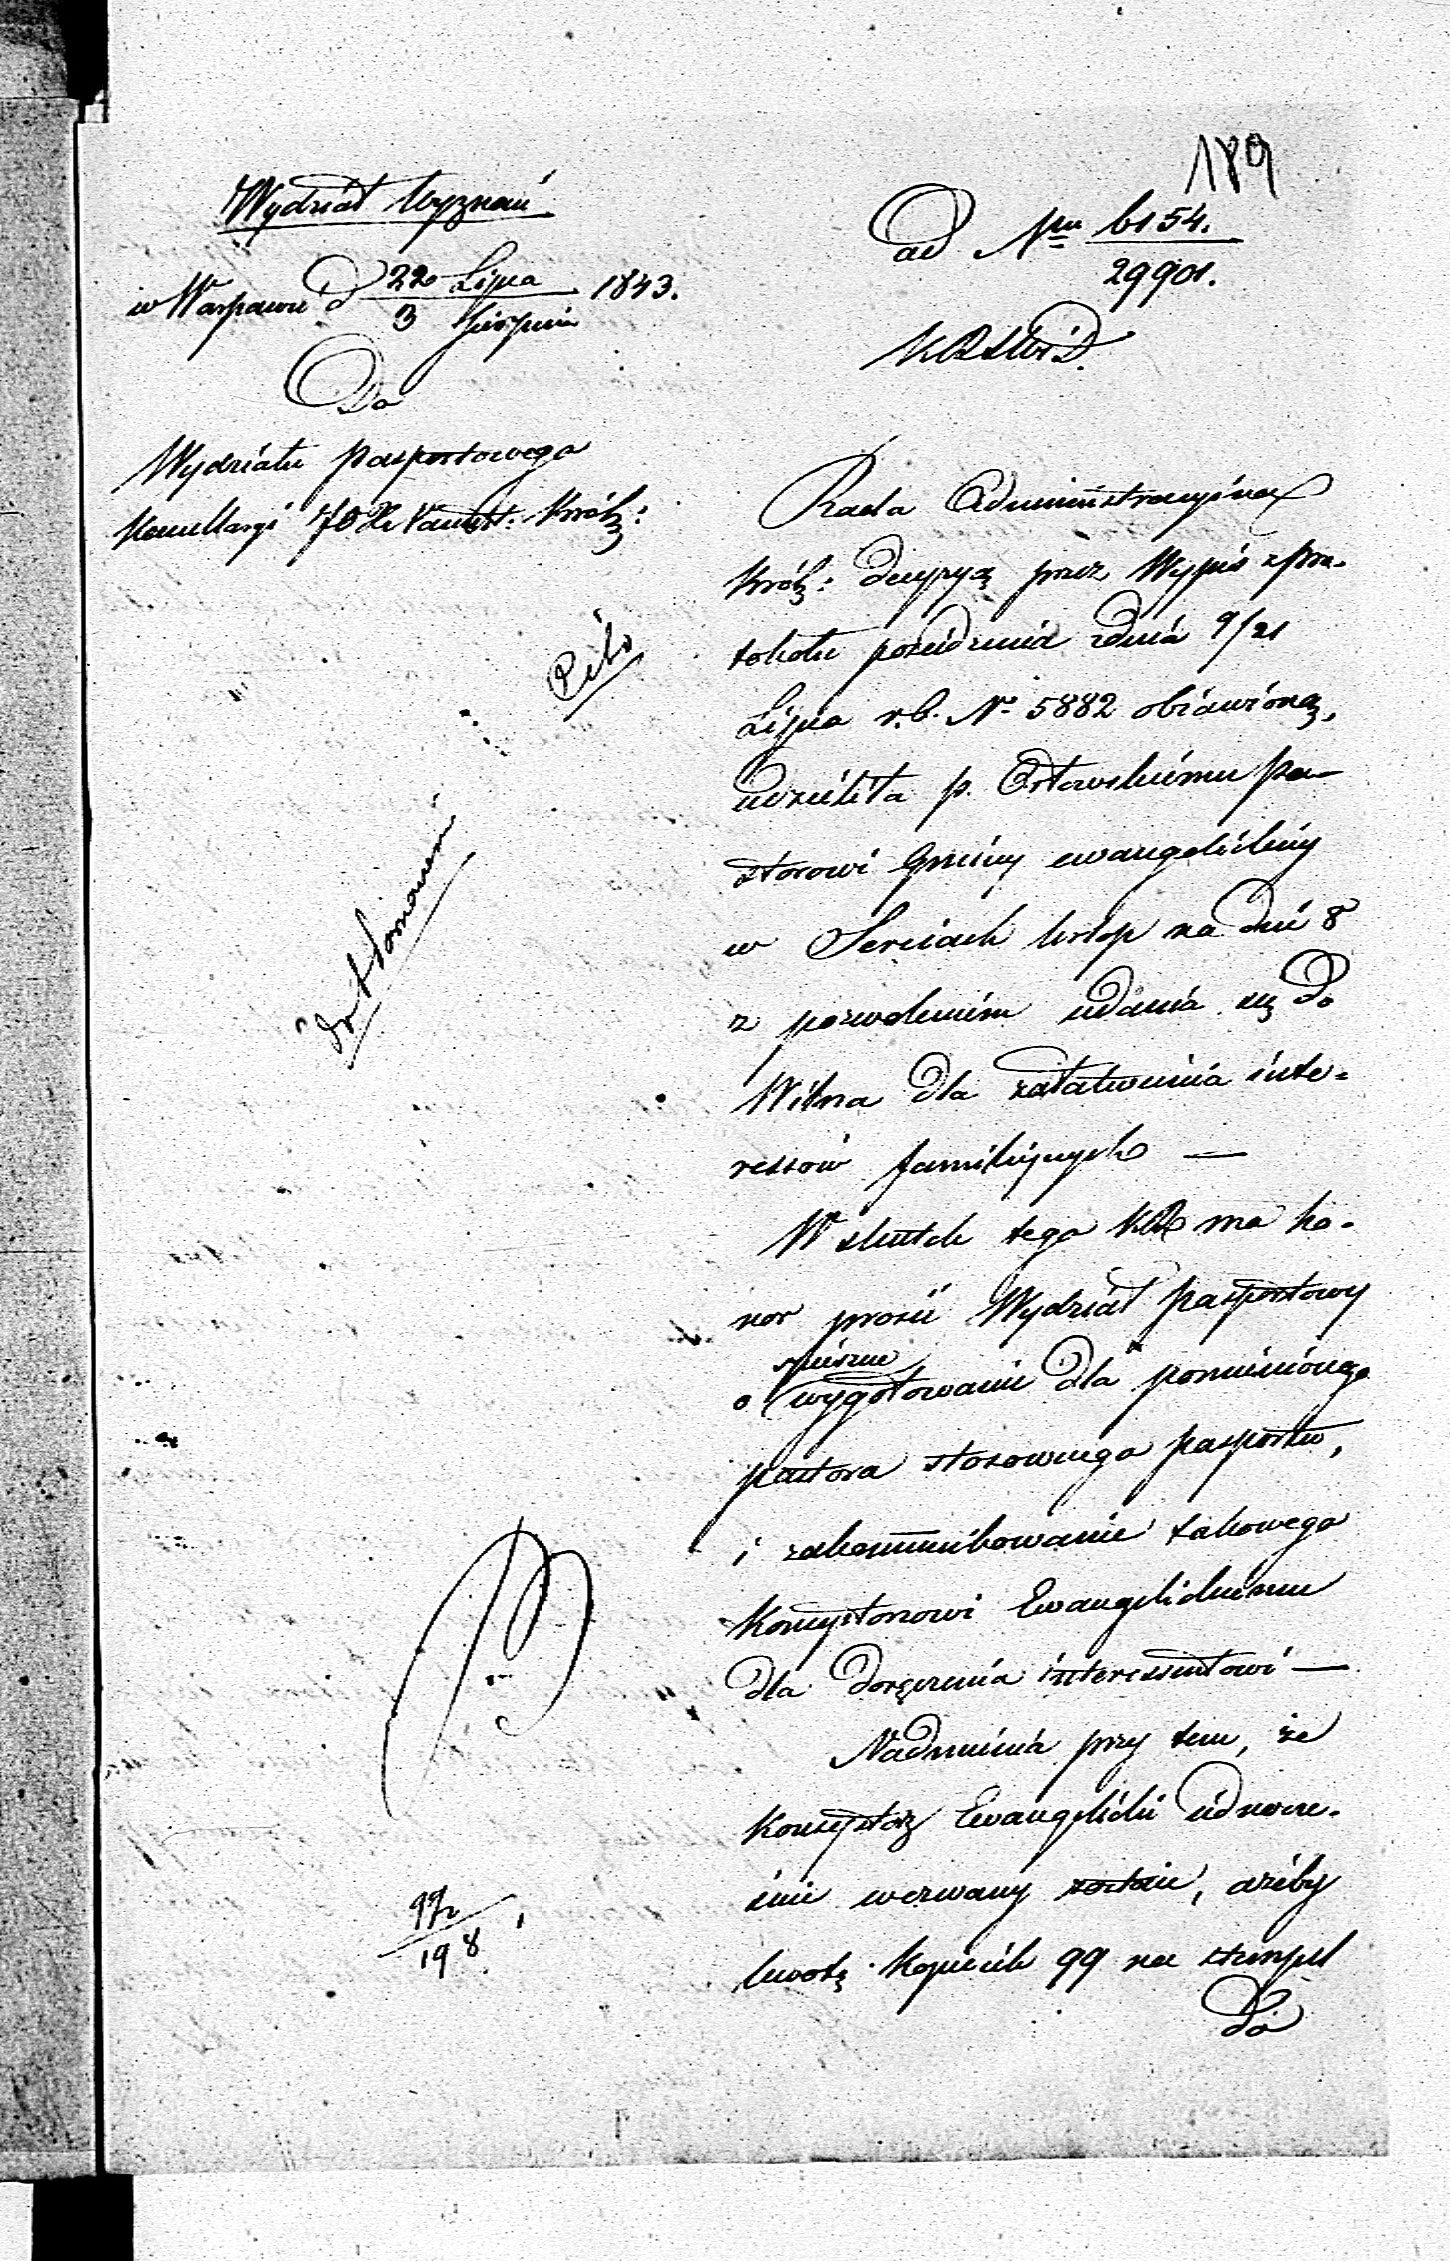 189
Wydział Wyznań
w Warszawie d 22 Lipca 1843.
3 Sierpnia
ad Nru 6154.
29901.
KRSWiD.
Do
Wydziału pasportowego
Kancellaryi JO Xcia Namiest: Król:
Rada Administracyina
Król: decyzyą przez Wypis z pro-
tokołu posiedzenia z dnia 9/21
Lipca r.b. No 5882 obiawioną,
udzieliła p. Orłowskiemu pa-
storowi Gminy ewangelickiey
w Sereiach Urlop na dni 8
z pozwoleniem udania się do
Wilna dla załatwienia inte-
ressów familijnych —
W skutek tego KR ma ho-
nor prosić Wydział pasportowy
spieszne
o wygotowanie dla pomienionego
pastora stosownego pasportu,
i zakommunikowanie takowego
Konsystorzowi Ewangelickiemu
dla doręczenia interessentowi —
Nadmienia przy tem, że
Konsystorz Ewangelicki iednocze-
śnie wezwany zostaie, ażeby
kwotę Kopieiek 99 na stempel
do
Cito
19 8